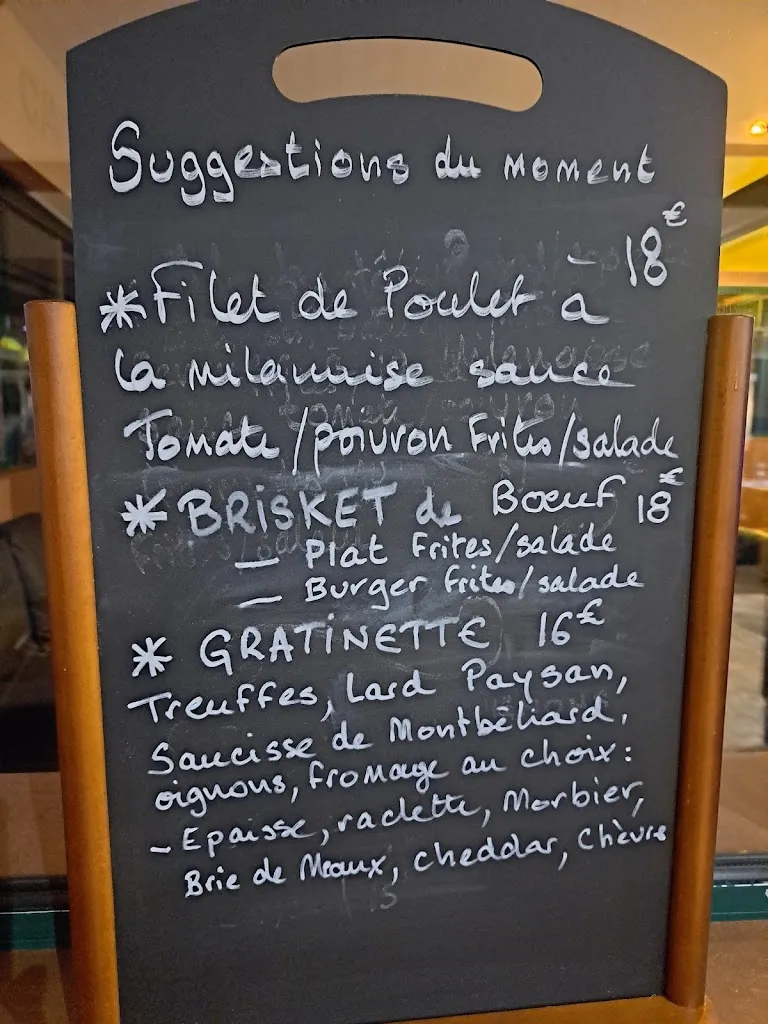 Suggestions du moment
*Filet de Poulet à 18€
la milanaise sauce
Tomate/poivron Frites/salade
*BRISKET de Boeuf 18€
- Plat Frites/salade
- Burger frites/salade
* GRATINETTE 16€
Treuffes, Lard Paysan,
Saucisse de Montbéliard,
oignons, fromage au choix:
- Epaisse, raclette, Morbier,
Brie de Meaux, cheddar, Chèvre